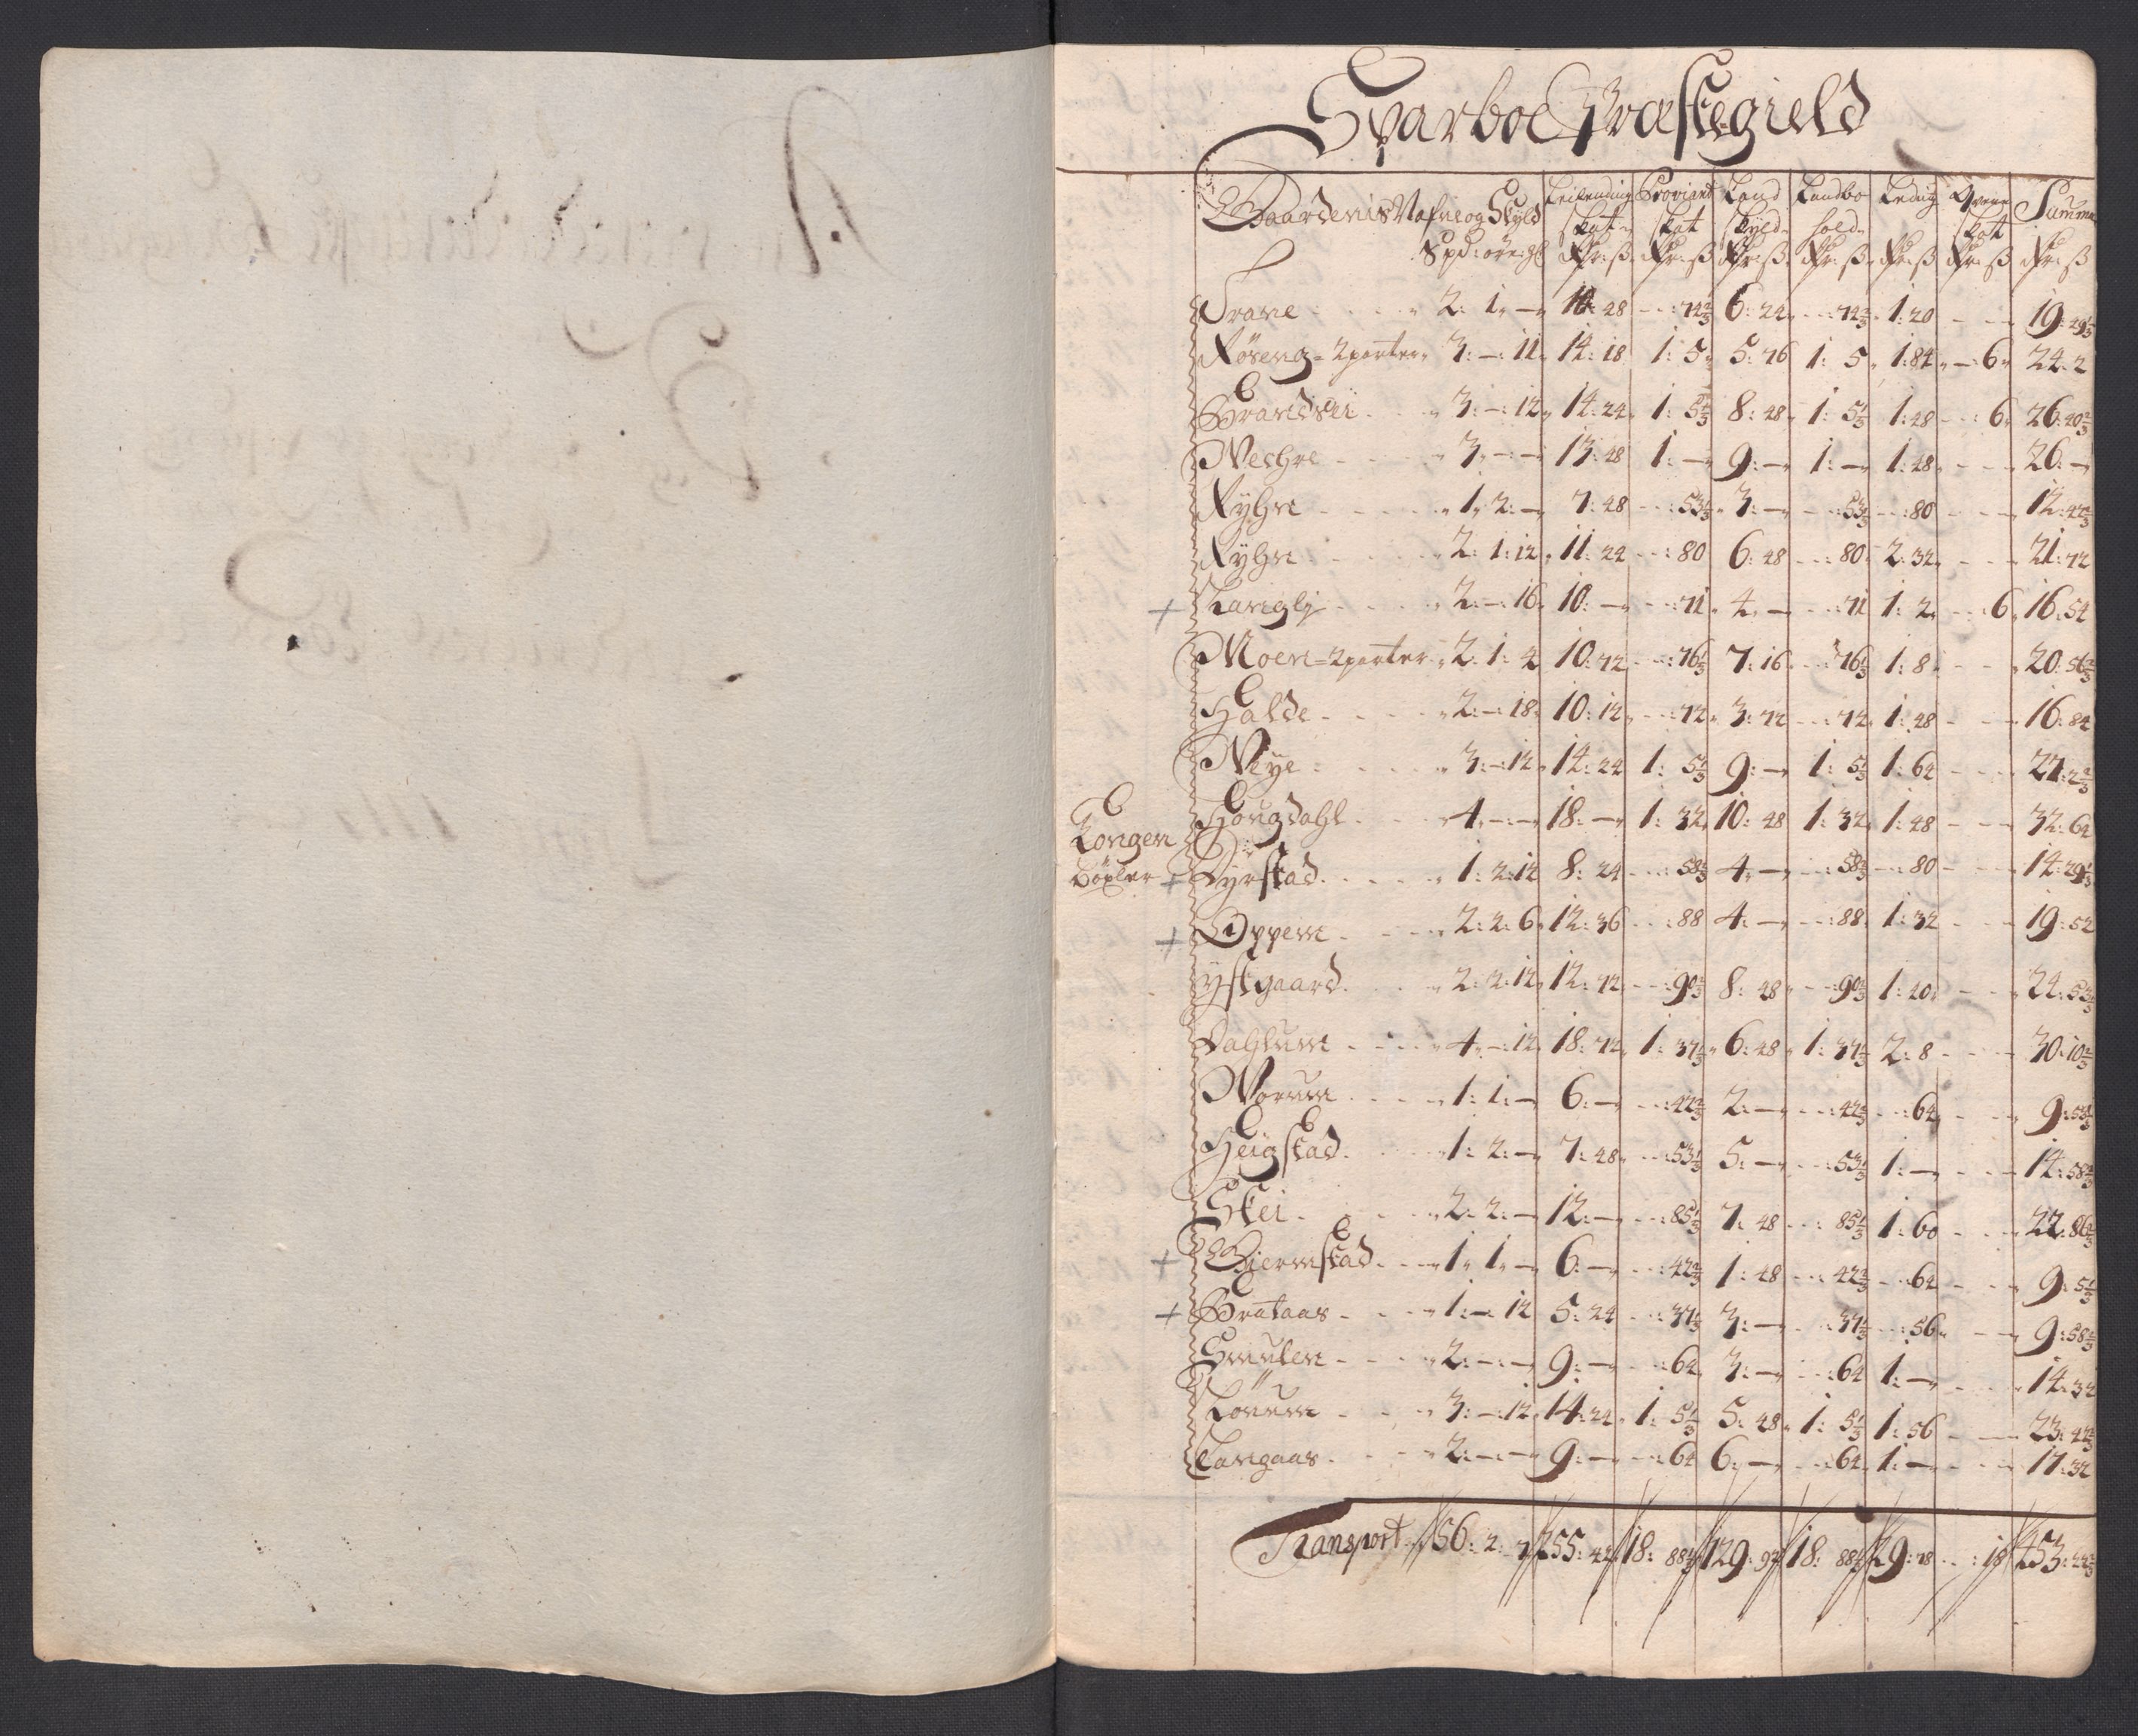 Sparboe Præstegield
Gaardenis Nafne og Skyld Leilending Proviant Land Landbo Leding Qværn Summa
Spd: øre: gl skat skat skyld hold skat
Rdr: ß Rdr: ß Rdr: ß Rdr: ß Rdr: ß Rdr: ß Rdr: ß
Trane 2: 1: — 10: 48 72⅔ 6: 24 72⅔ 1: 20 19: 49⅓
Røseng = 2 parter 3: — 11 14: 18 1: 5 5: 76 1: 5 1: 84 — 6 24: 2
Brandsei 3: — 12 14: 24 1: 5⅓ 8: 48 1: 5⅓ 1: 48 6 26: 40⅔
Wechre 3: — — 13: 48 1: — 9: — 1: — 1: 48 26: —
Rÿhre 1: 2: — 7: 48 53⅓ 3: — 53⅓ 80 12: 42⅔
Rÿhre 2: 1: 12 11: 24 80 6: 48 80 2: 32 21: 72
+ Langlj 2: — 16 10: — 71 4: — 71 1: 2 6 16: 54
Moen = 2 parter 2: 1: 2 10: 72 76⅓ 7: 16 76⅓ 1: 8 20: 56⅔
Halde 2: — 18 10: 12 72 3: 72 72 1: 48 16: 84
Weÿe 3: — 12 14: 24 1: 5⅓ 9: — 1: 5⅓ 1: 64 27: 2⅔
Hougdahl 4: — — 18: — 1: 32 10: 48 1: 32 1: 48 32: 64
Kongen
bøxler + Dyrstad 1: 2: 12 8: 24 58⅔ 4: — 58⅔ 80 14: 29⅓
+ Oppem 2: 2: 6 12: 36 88 4: — 88 1: 32 19: 52
Ÿstgaard 2: 2: 12 12: 72 90⅔ 8: 48 90⅔ 1: 40 24: 53⅓
Dahlum 4: — 12 18: 72 1: 37⅓ 6: 48 1: 37⅓ 2: 8 30: 10⅔
Worum 1: 1: — 6: — 42⅔ 2: — 42⅔ 64 9: 53⅓
Heigstad 1: 2: — 7: 48 53⅓ 5: — 53⅓ 1: — 14: 58⅔
Skei 2: 2: — 12: — 85⅓ 7: 48 85⅓ 1: 60 22: 86⅔
+ Giermstad 1: 1: — 6: — 42⅔ 1: 48 42⅔ 64 9: 5⅓
+ Brataas 1: — 12 5: 24 37⅓ 3: — 37⅓ 56 9: 58⅔
Smulen 2: — — 9: — 64 3: — 64 1: — 14: 32
Löeum 3: — 12 14: 24 1: 5⅓ 5: 48 1: 5⅓ 1: 56 23: 42⅔
Langaas 2: — — 9: — 64 6: — 64 1: — 17: 32
Transport 56: 2: 7 255: 42 18: 88⅓ 129: 92 18: 88⅓ 29: 78 18 453: 22⅔